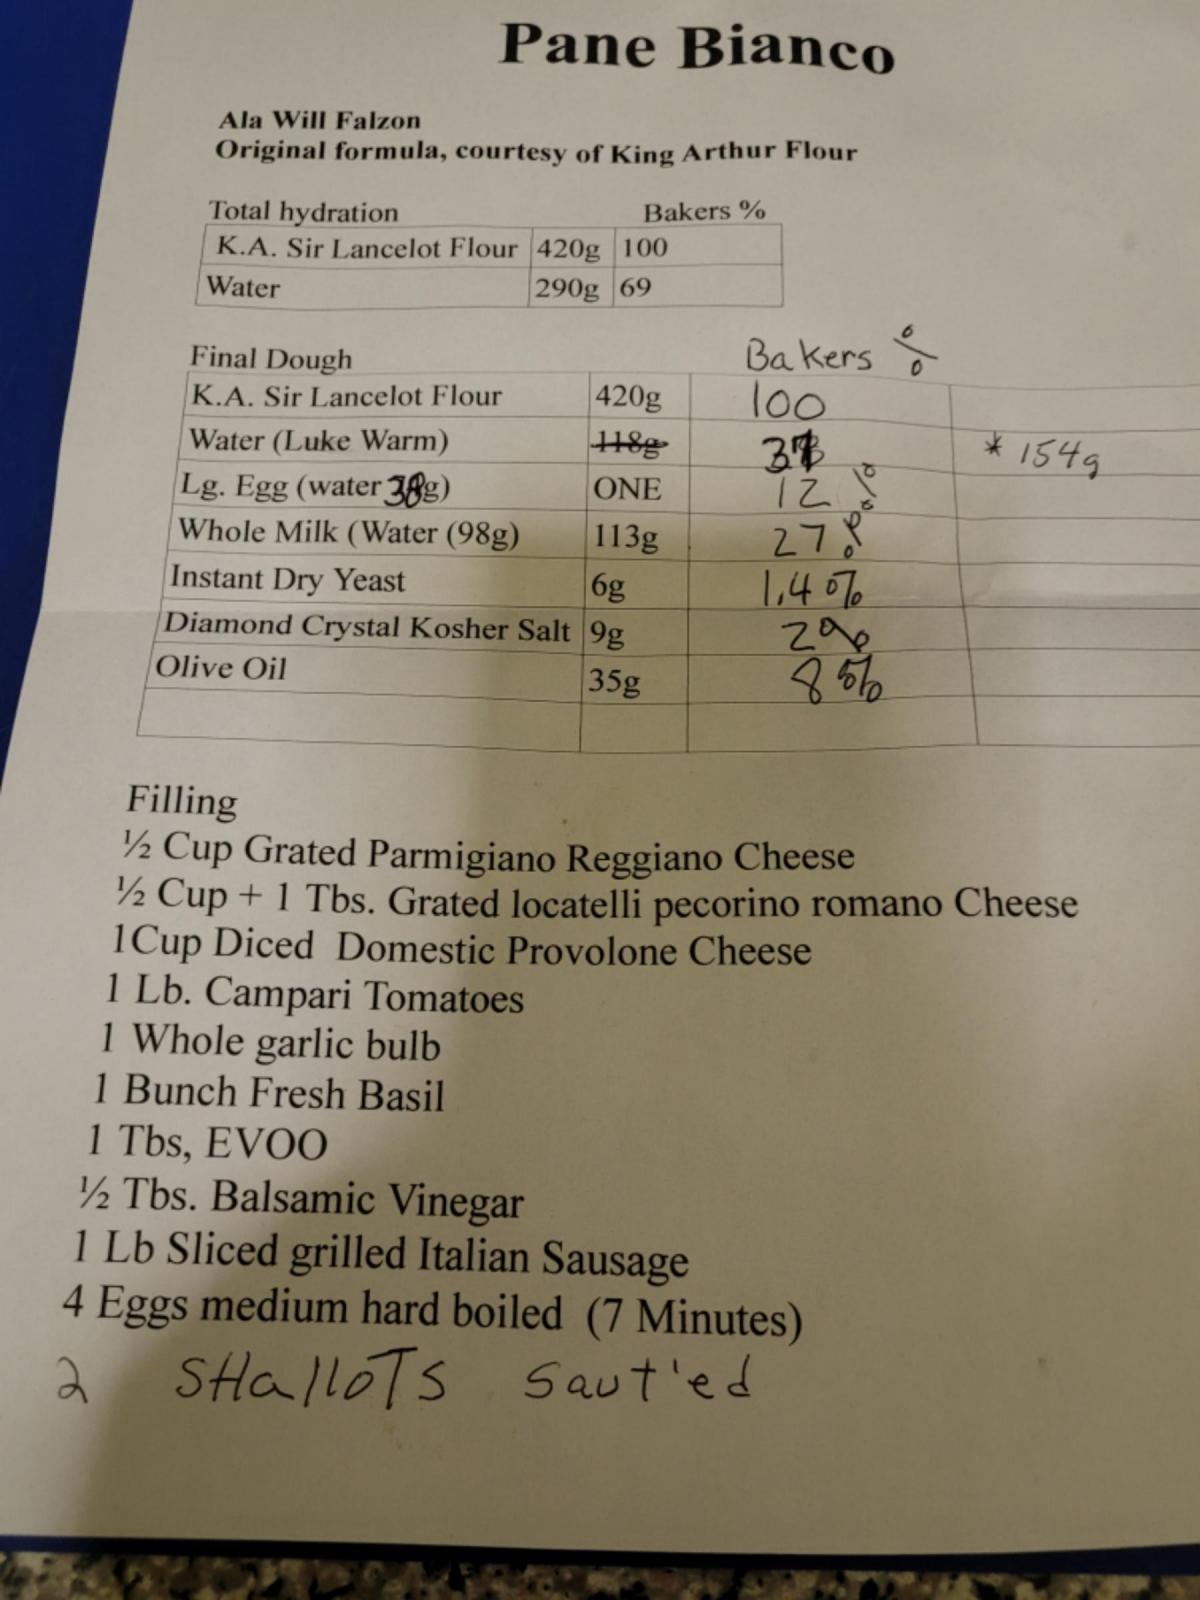 Pane Bianco
Ala Will Falzon
Original formula, courtesy of King Arthur Flour
Total hydration Bakers %
K.A. Sir Lancelot Flour 420g 100
Water 290g 69
Final Dough Bakers %
K.A. Sir Lancelot Flour 420g 100
Water (Luke Warm) 118g * 154g
Lg. Egg (water 38g) ONE 12 %
Whole Milk (Water (98g) 113g 27%
Instant Dry Yeast 6g 1.4%
Diamond Crystal Kosher Salt 9g 2%
Olive Oil 35g 8%
Filling
½ Cup Grated Parmigiano Reggiano Cheese
½ Cup + 1 Tbs. Grated locatelli pecorino romano Cheese
1Cup Diced Domestic Provolone Cheese
1 Lb. Campari Tomatoes
1 Whole garlic bulb
1 Bunch Fresh Basil
1 Tbs, EVOO
½ Tbs. Balsamic Vinegar
1 Lb Sliced grilled Italian Sausage
4 Eggs medium hard boiled (7 Minutes)
2 SHallOTS saut'ed